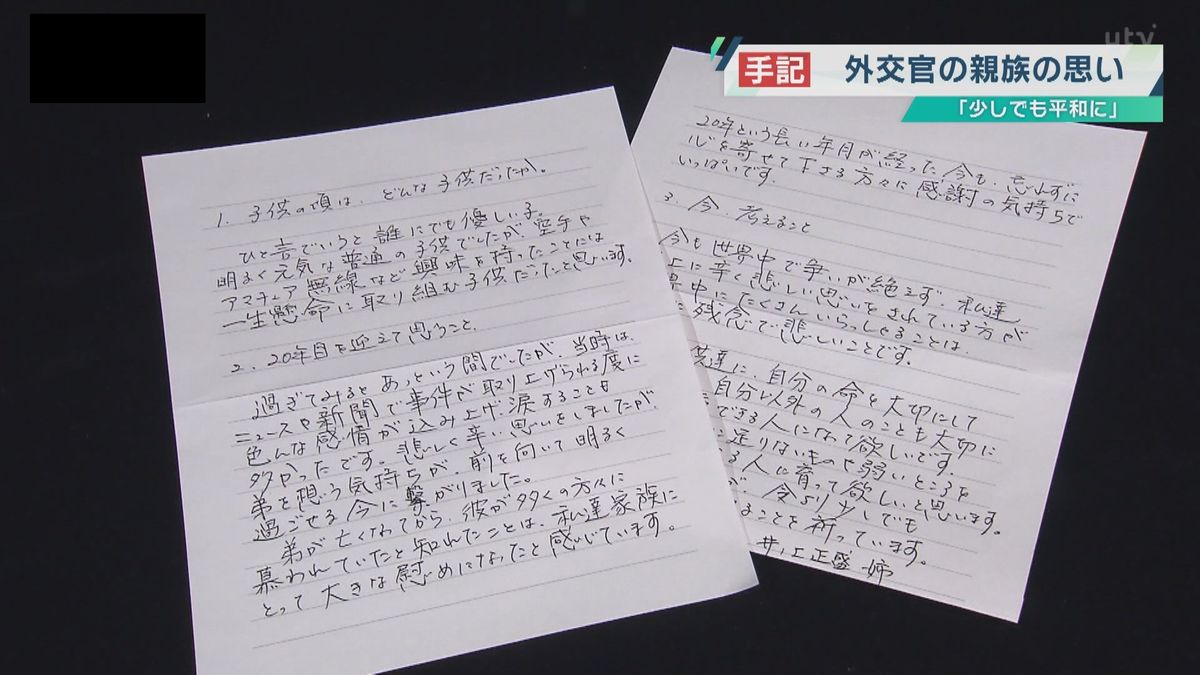 utv
手記 外交官の親族の思い
「少しでも平和に」
1. 子供の頃は、どんな子供だったか。
ひと言でいうと誰にでも優しい子。
明るく元気な普通の子供でしたが空手や
アマチュア無線など興味を持ったことには
一生懸命に取り組む子供だったと思います。
2. 20年目を迎えて思うこと
過ぎてみるとあっという間でしたが、当時は、
ニュースや新聞で事件が取り上げられる度に
色んな感情が込み上げ涙することも
多かったです。悲しく辛い思いをしましたが
弟を想う気持ちが、前を向いて明るく
過ごせる今に繋がりました。
弟が亡くなってから、彼が多くの方々に
慕われていたと知れたことは、私達家族に
とって大きな慰めになったと感じています。
20年という長い年月が経った今も、忘れずに
心を寄せて下さる方々に感謝の気持ちで
いっぱいです。
3. 今、考えること
今も世界中で争いが絶えず、私達
上に辛く悲しい思いをされている方が
界中にたくさんいらっしゃることは、
残念で悲しいことです。
供達に、自分の命を大切にして
自分以外の人のことも大切に
できる人になって欲しいです。
足りないものや弱いところを
る人に育って欲しいと思います。
が、今より少しでも
ることを祈っています。
井ノ上正盛 姉